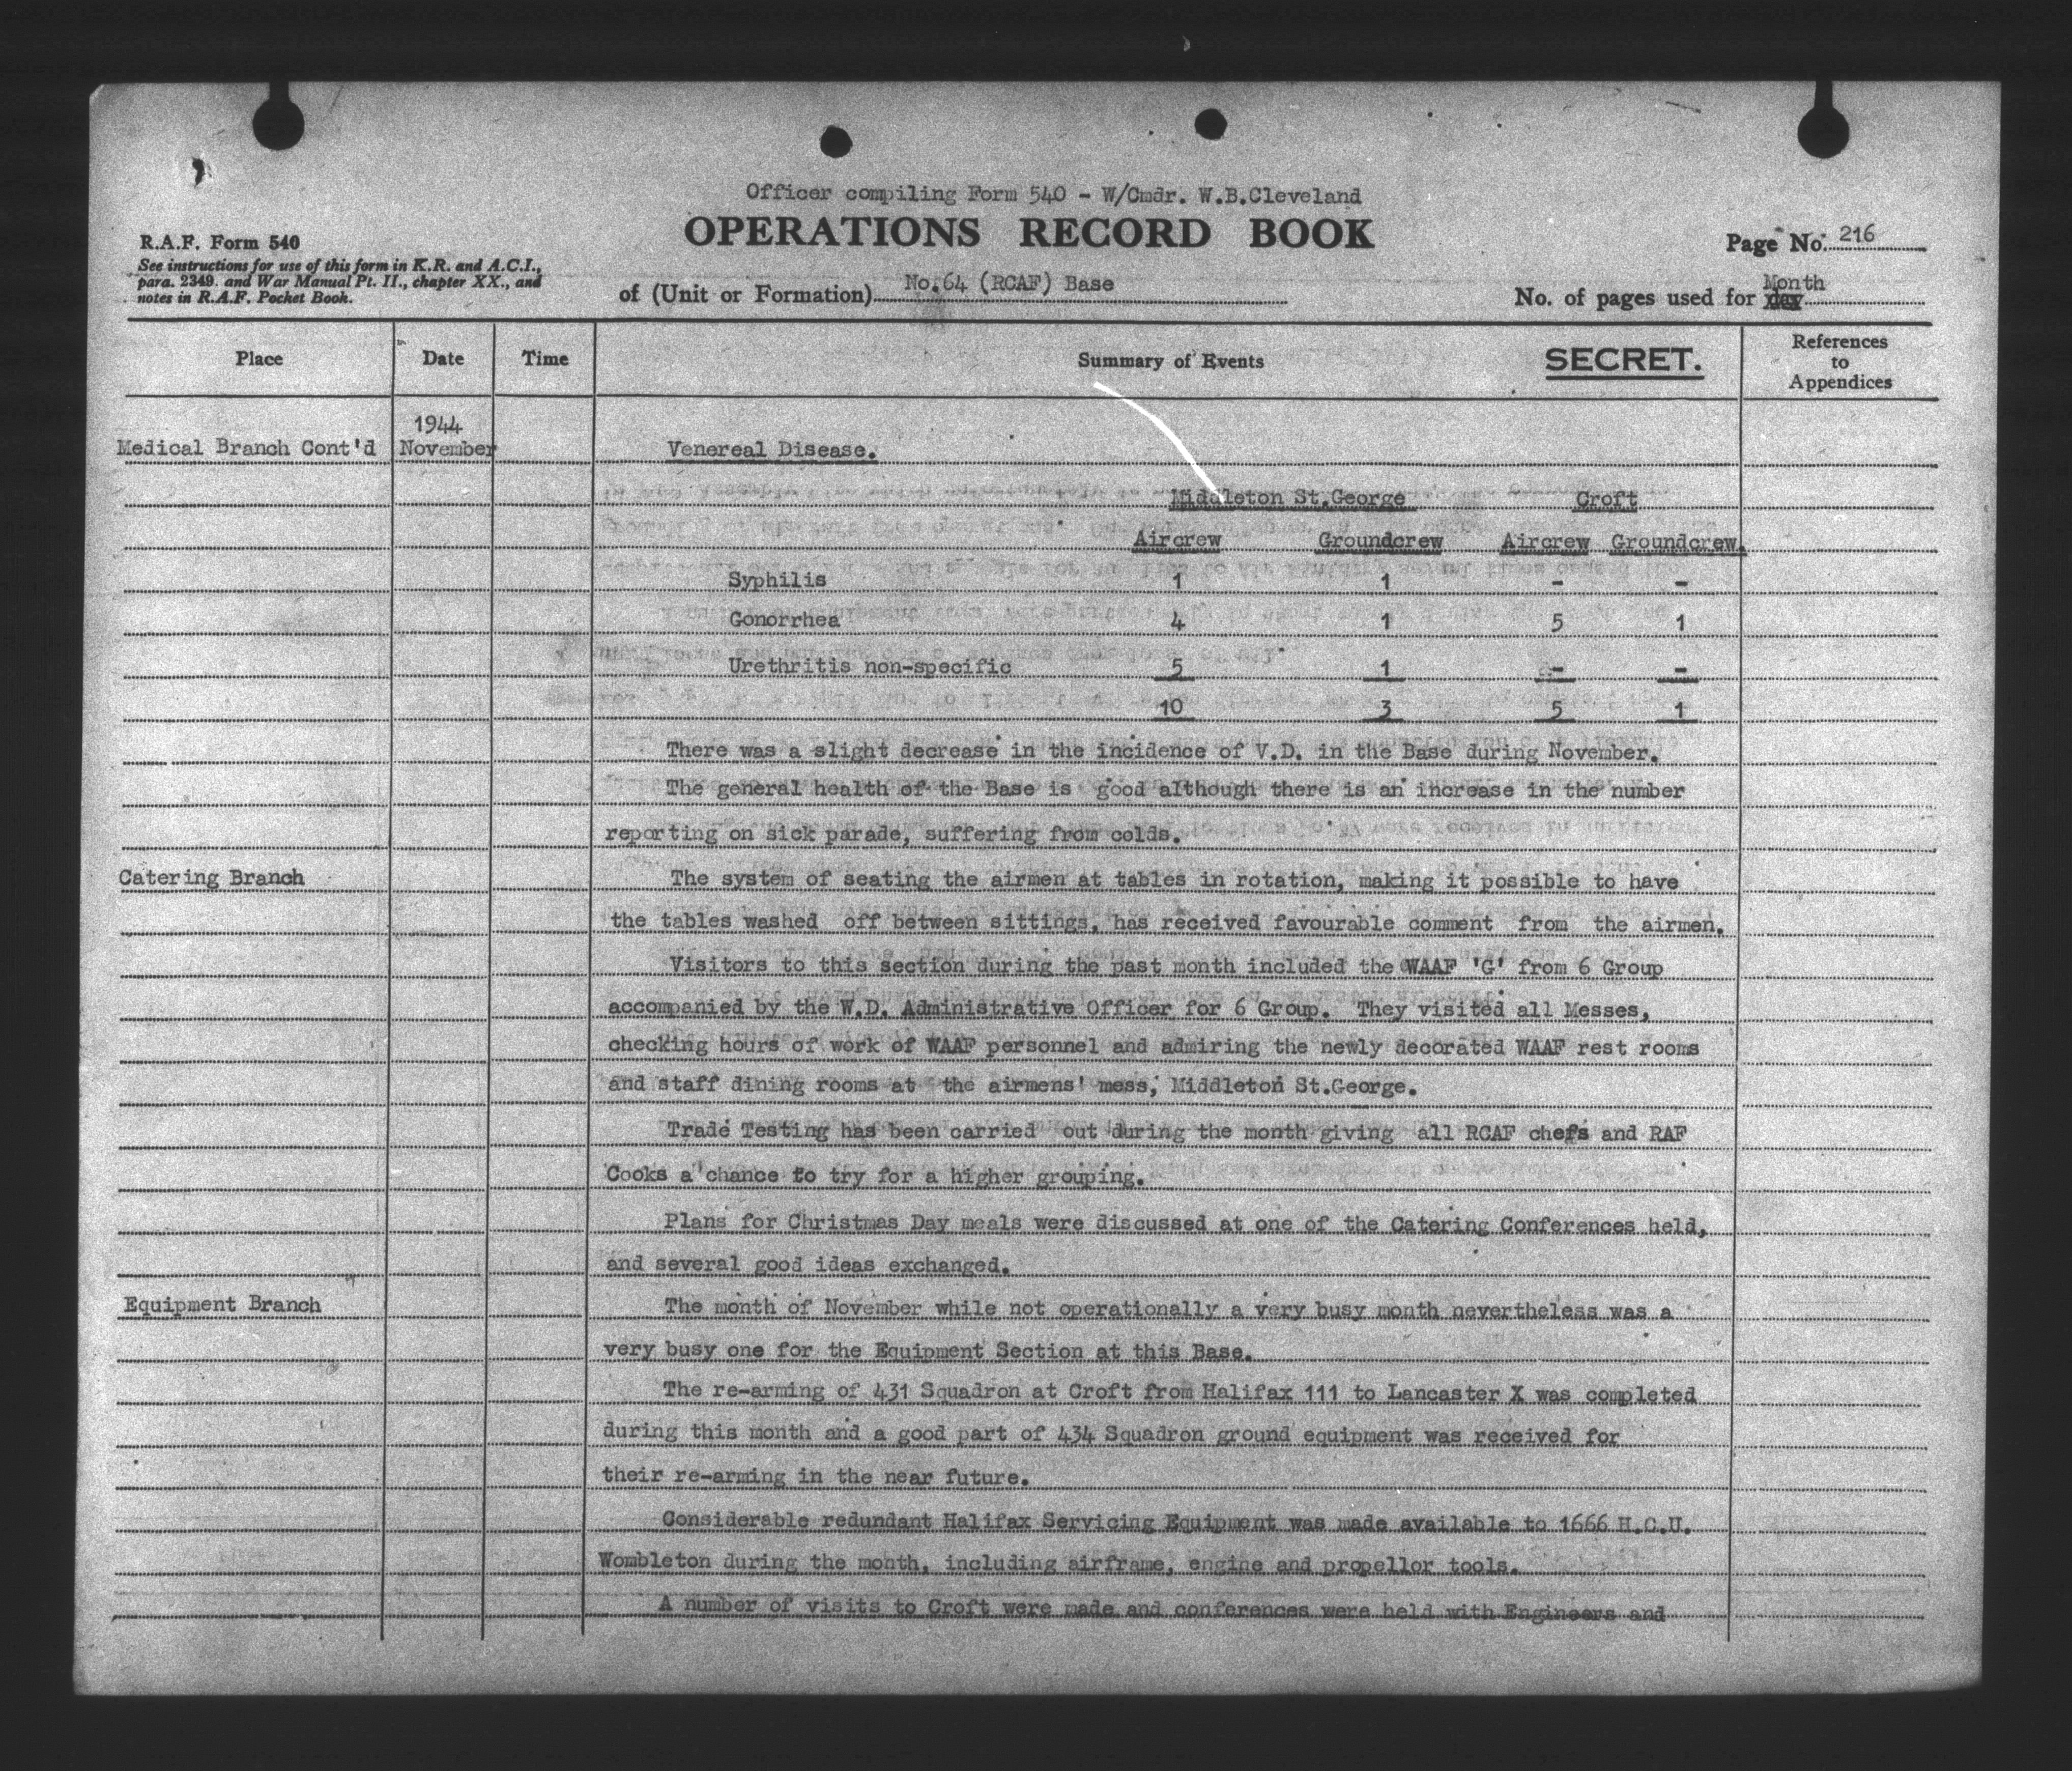 Officer compiling Form 540 - W/Cmdr. W.B.Cleveland
OPERATIONS RECORD BOOK
R.A.F. Form 540
See instructions for use of this form in K.R. and A.C.I.,
para. 2349. and War Manual Pt. II., chapter XX., and
notes in R.A.F. Pocket Book.
Page No. 216
of (Unit or Formation) No.64 (RCAF) Base
No. of pages used for day Month
Place Date Time Summary of Events SECRET. References to Appendices
1944
Medical Branch Cont'd November Venereal Disease.
Middleton St.George Croft
Aircrew Groundcrew Aircrew Groundcrew.
Syphilis 1 1 - -
Gonorrhea 4 1 5 1
Urethritis non-specific 5 1 - -
10 3 5 1
There was a slight decrease in the incidence of V.D. in the Base during November.
The general health of the Base is good although there is an increase in the number
reporting on sick parade, suffering from colds.
Catering Branch The system of seating the airmen at tables in rotation, making it possible to have
the tables washed off between sittings, has received favourable comment from the airmen.
Visitors to this section during the past month included the WAAF 'G' from 6 Group
accompanied by the W.D. Administrative Officer for 6 Group. They visited all Messes,
checking hours of work of WAAF personnel and admiring the newly decorated WAAF rest rooms
and staff dining rooms at the airmens' mess, Middleton St.George.
Trade Testing has been carried out during the month giving all RCAF chefs and RAF
Cooks a chance to try for a higher grouping.
Plans for Christmas Day meals were discussed at one of the Catering Conferences held,
and several good ideas exchanged.
Equipment Branch The month of November while not operationally a very busy month nevertheless was a
very busy one for the Equipment Section at this Base.
The re-arming of 431 Squadron at Croft from Halifax 111 to Lancaster X was completed
during this month and a good part of 434 Squadron ground equipment was received for
their re-arming in the near future.
Considerable redundant Halifax Servicing Equipment was made available to 1666 H.C.U.
Wombleton during the month, including airframe, engine and propellor tools.
A number of visits to Croft were made and conferences were held with Engineers and